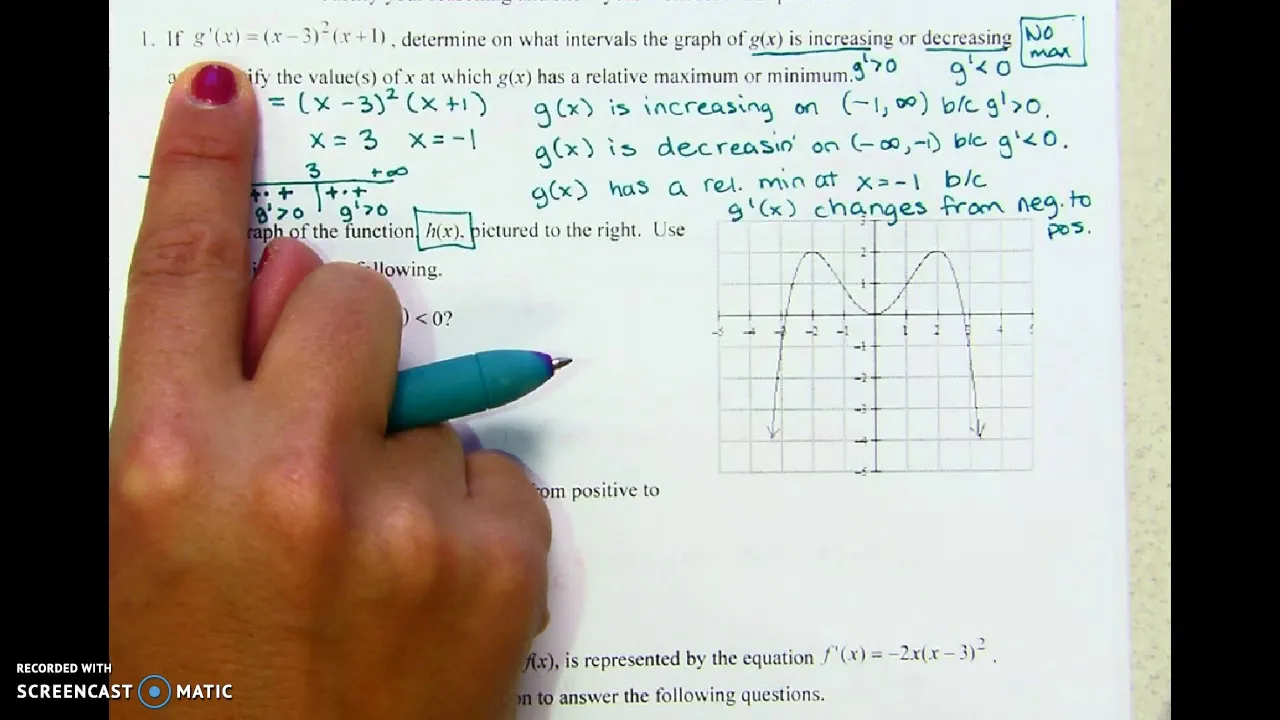 1. If g'(x) = (x − 3)²(x + 1), determine on what intervals the graph of g(x) is increasing or decreasing No max
the value(s) of x at which g(x) has a relative maximum or minimum. g'>0 g'<0
= (x − 3)² (x + 1) g(x) is increasing on (−1, ∞) b/c g'>0.
x = 3 x = −1 g(x) is decreasin' on (−∞, −1) b/c g'<0.
3 +∞
g(x) has a rel. min at x = −1 b/c
g'>0 g'>0 g'(x) changes from neg. to pos.
of the function, h(x), pictured to the right. Use
) < 0?
2
1
-5 -4 -2 -1 1 2 3 4
-1
-2
-3
-4
-5
positive to
f(x), is represented by the equation f'(x) = −2x(x − 3)².
to answer the following questions.
RECORDED WITH
SCREENCAST MATIC